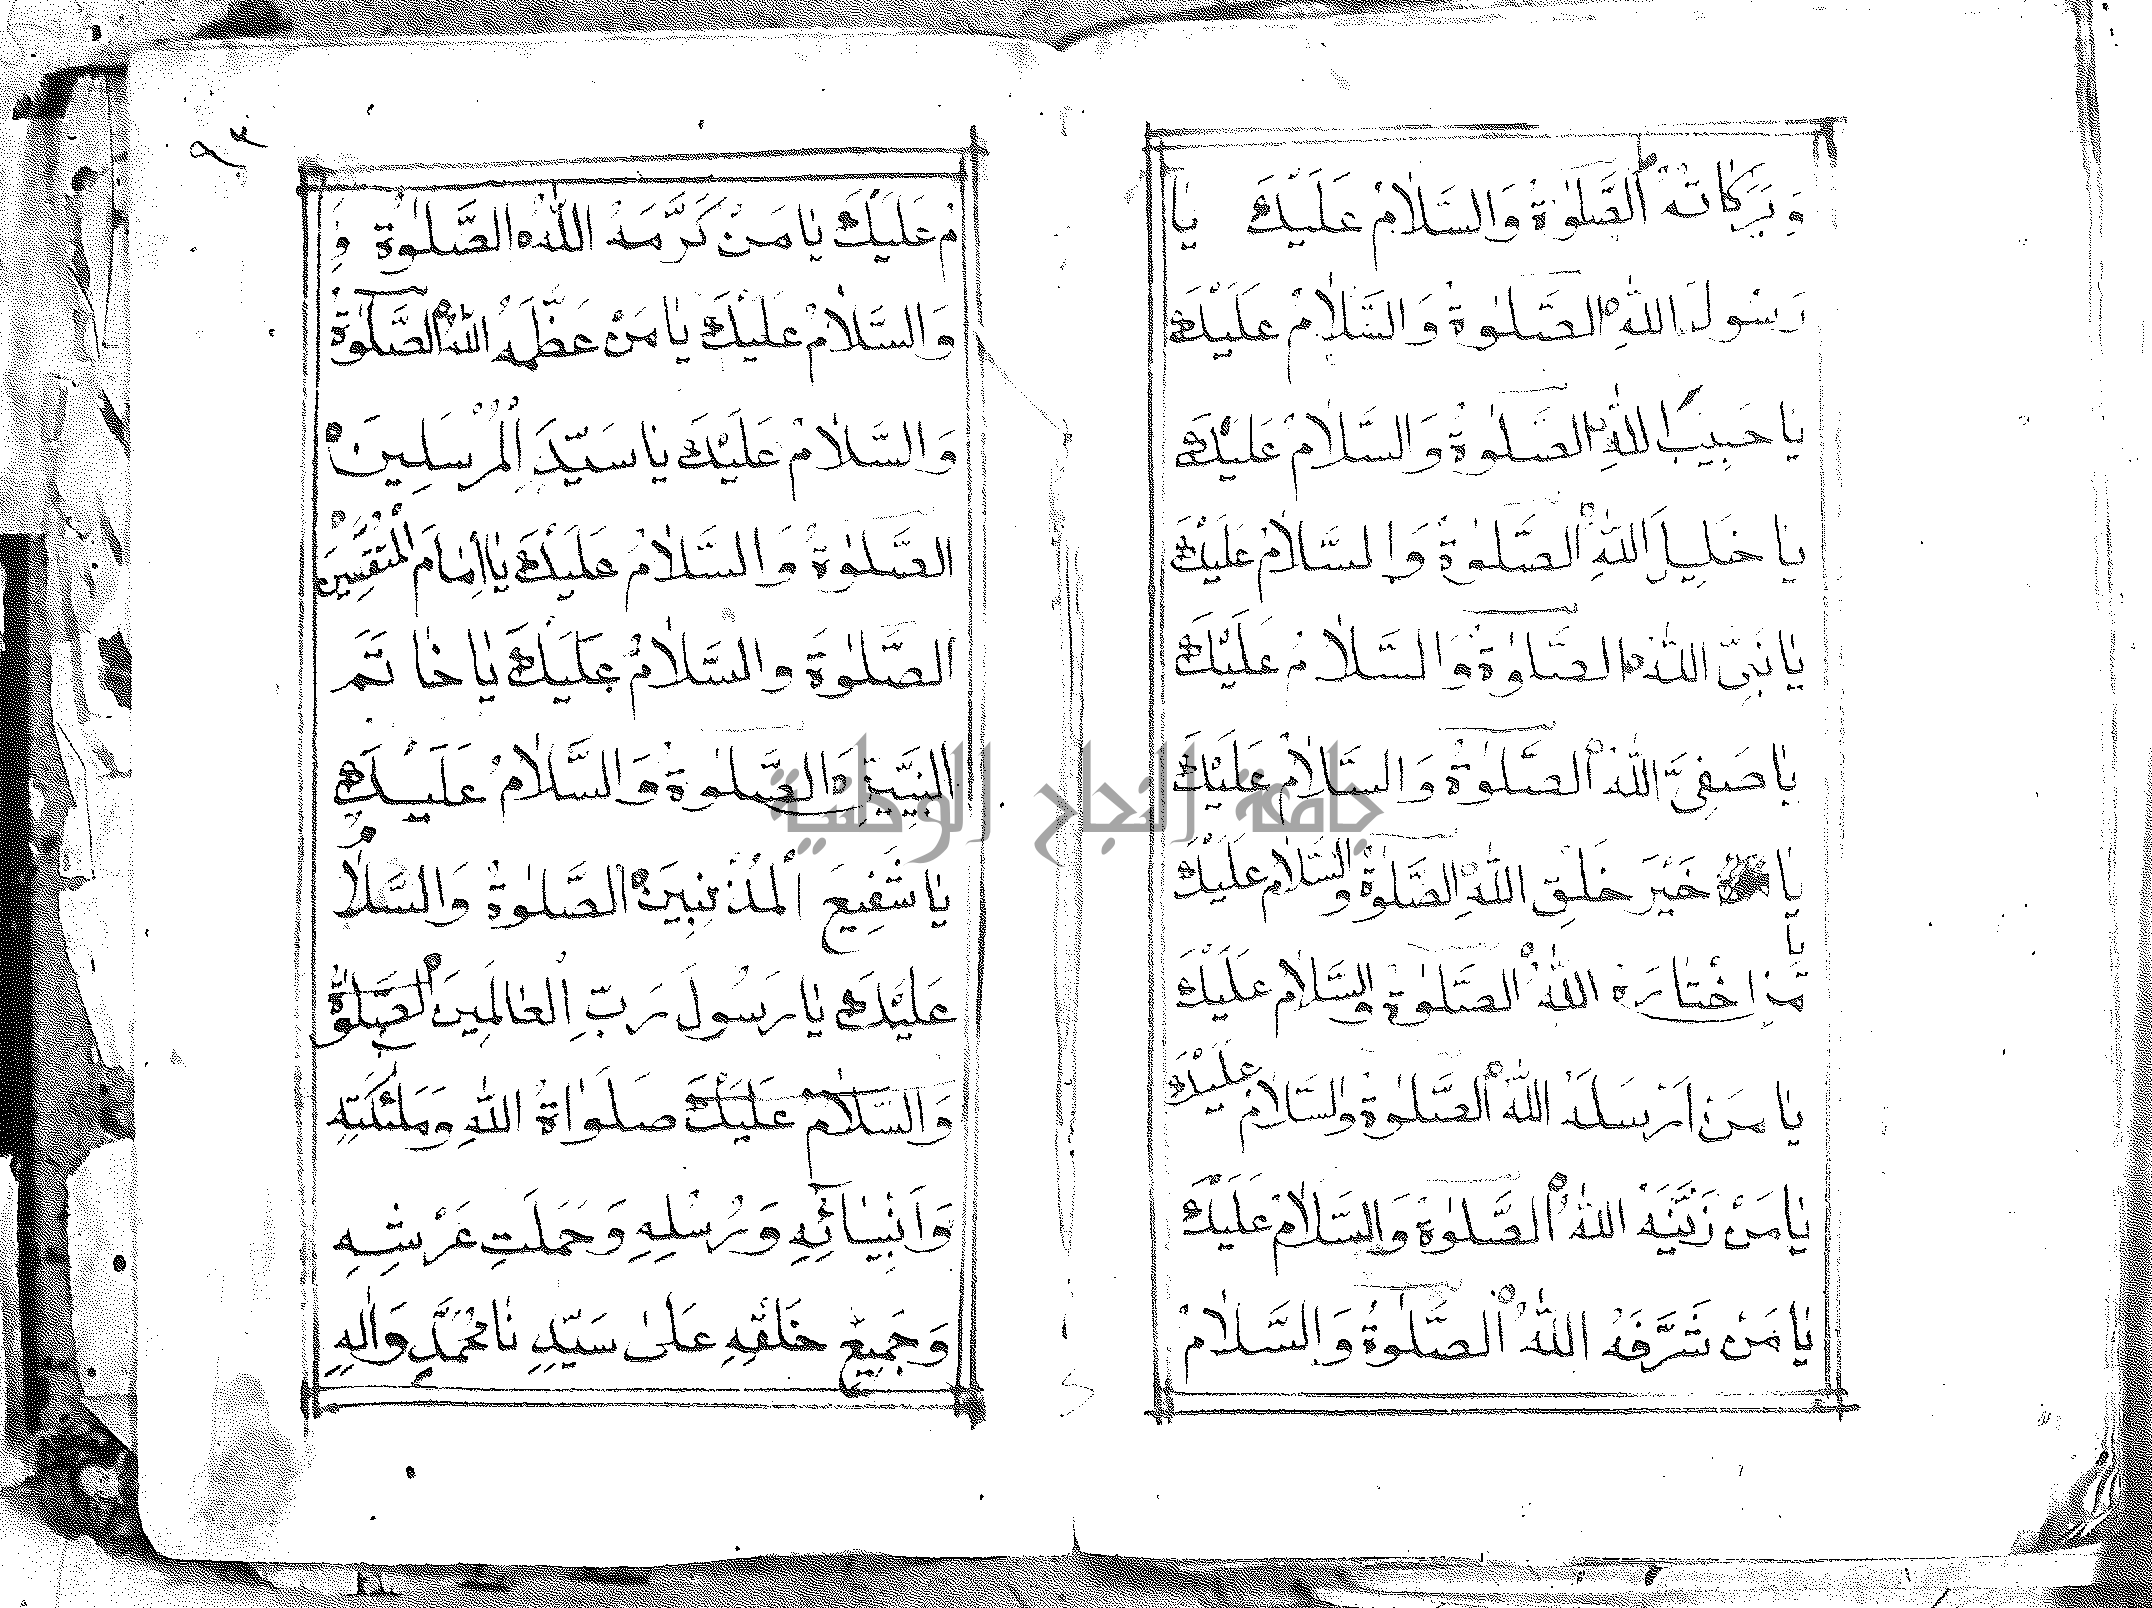 وَبَرَكَاتُهُ اَلصَّلٰوةُ وَالسَّلَامُ عَلَيْكَ يَا
رَسُولَ اللّٰهِ الصَّلٰوةُ وَالسَّلَامُ عَلَيْكَ
يَا حَبِيبَ اللّٰهِ الصَّلٰوةُ وَالسَّلَامُ عَلَيْكَ
يَا خَلِيلَ اللّٰهِ الصَّلٰوةُ وَالسَّلَامُ عَلَيْكَ
يَا نَبِىَّ اللّٰهِ الصَّلٰوةُ وَالسَّلَامُ عَلَيْكَ
يَا صَفِىَّ اللّٰهِ الصَّلٰوةُ وَالسَّلَامُ عَلَيْكَ
يَا خَيْرَ خَلْقِ اللّٰهِ الصَّلٰوةُ وَالسَّلَامُ عَلَيْكَ
يَا مَنِ اخْتَارَهُ اللّٰهُ الصَّلٰوةُ وَالسَّلَامُ عَلَيْكَ
يَا مَنْ اَرْسَلَهُ اللّٰهُ الصَّلٰوةُ وَالسَّلَامُ عَلَيْكَ
يَا مَنْ زَيَّنَهُ اللّٰهُ الصَّلٰوةُ وَالسَّلَامُ عَلَيْكَ
يَا مَنْ شَرَّفَهُ اللّٰهُ الصَّلٰوةُ وَالسَّلَامُ
٩٣
مُ عَلَيْكَ يَا مَنْ كَرَّمَهُ اللّٰهُ الصَّلٰوةُ وَ
وَالسَّلَامُ عَلَيْكَ يَا مَنْ عَظَّمَهُ اللّٰهُ الصَّلٰوةُ
وَالسَّلَامُ عَلَيْكَ يَا سَيِّدَ الْمُرْسَلِينَ
الصَّلٰوةُ وَالسَّلَامُ عَلَيْكَ يَا اِمَامَ الْمُتَّقِينَ
الصَّلٰوةُ وَالسَّلَامُ عَلَيْكَ يَا خَاتَمَ
النَّبِيِّينَ الصَّلٰوةُ وَالسَّلَامُ عَلَيْكَ
يَا شَفِيعَ الْمُذْنِبِينَ الصَّلٰوةُ وَالسَّلَامُ
عَلَيْكَ يَا رَسُولَ رَبِّ الْعَالَمِينَ الصَّلٰوةُ
وَالسَّلَامُ عَلَيْكَ صَلَوَاةُ اللّٰهِ وَمَلٰئِكَتِهِ
وَاَنْبِيَائِهِ وَرُسُلِهِ وَحَمَلَتِ عَرْشِهِ
وَجَمِيعِ خَلْقِهِ عَلَى سَيِّدِنَا مُحَمَّدٍ وَاٰلِهِ
جامعة النجاح الوطنية